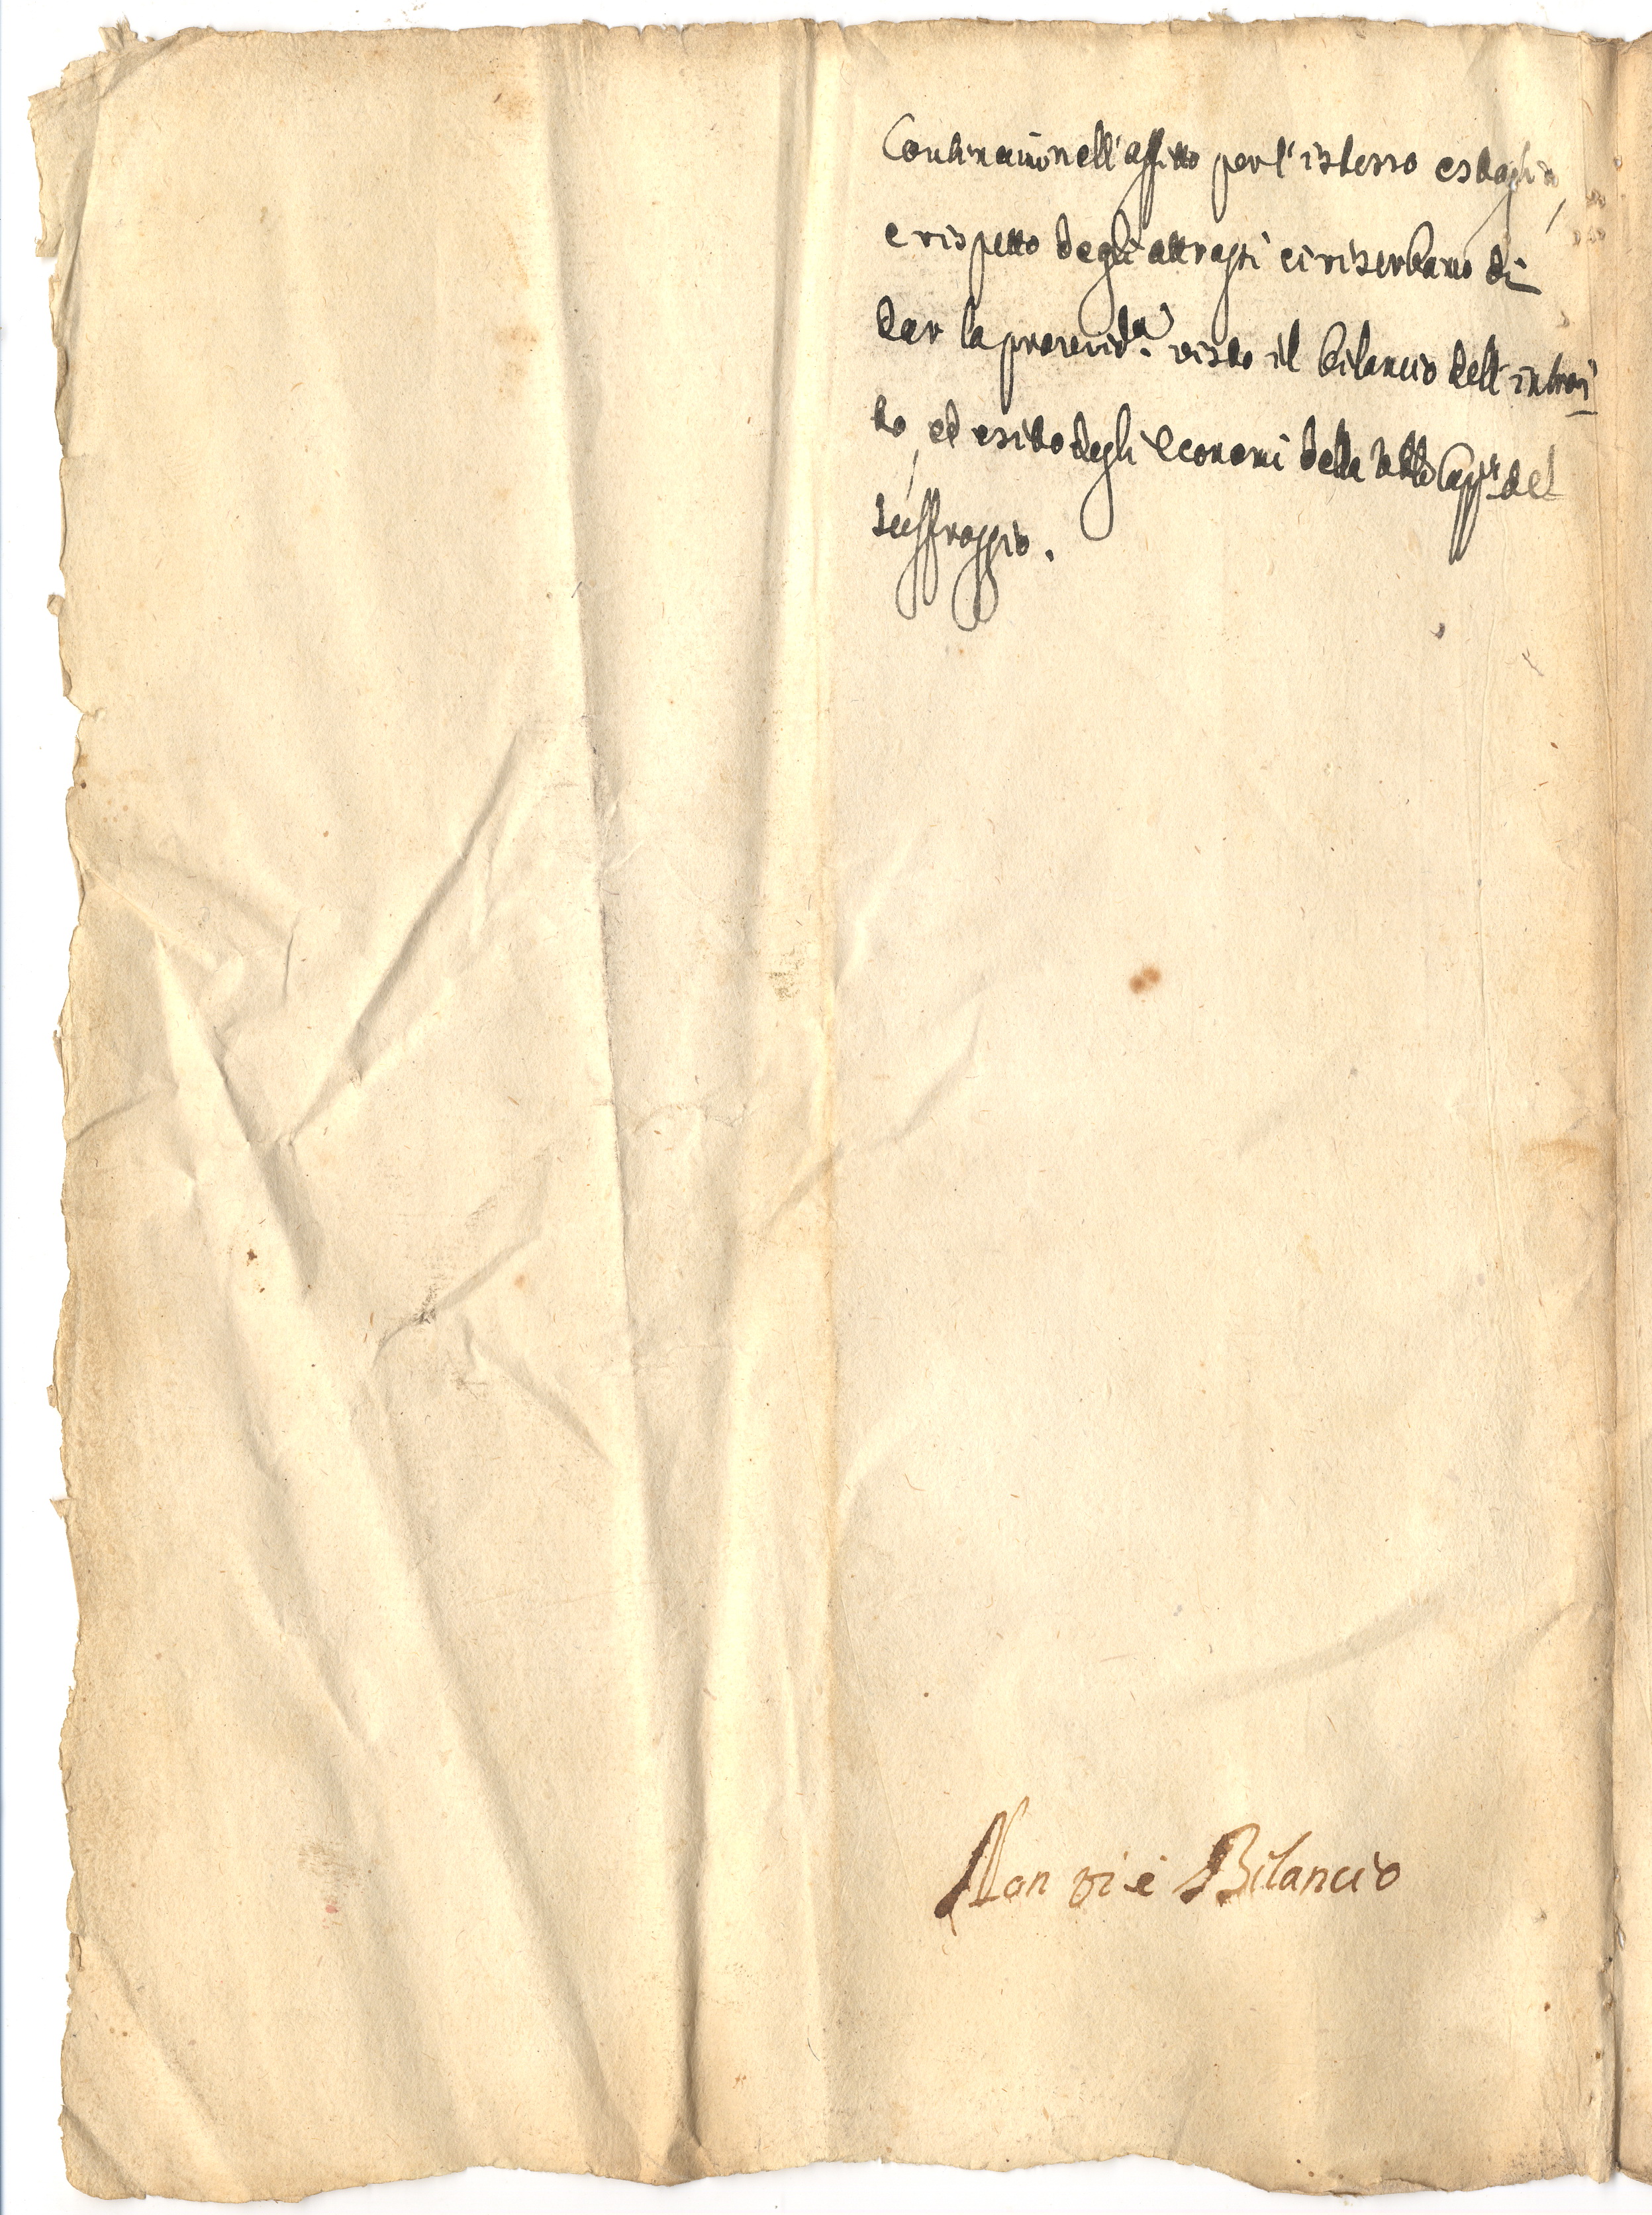 Continuino nell'affitto per l'istesso estaglio,
e rispetto degli attrassi ci riserbamo di
dar la provvid.a visto il bilancio dell'introi
to, ed esito degli Economi della Capp.a del
suffraggio.
Non vi è Bilancio